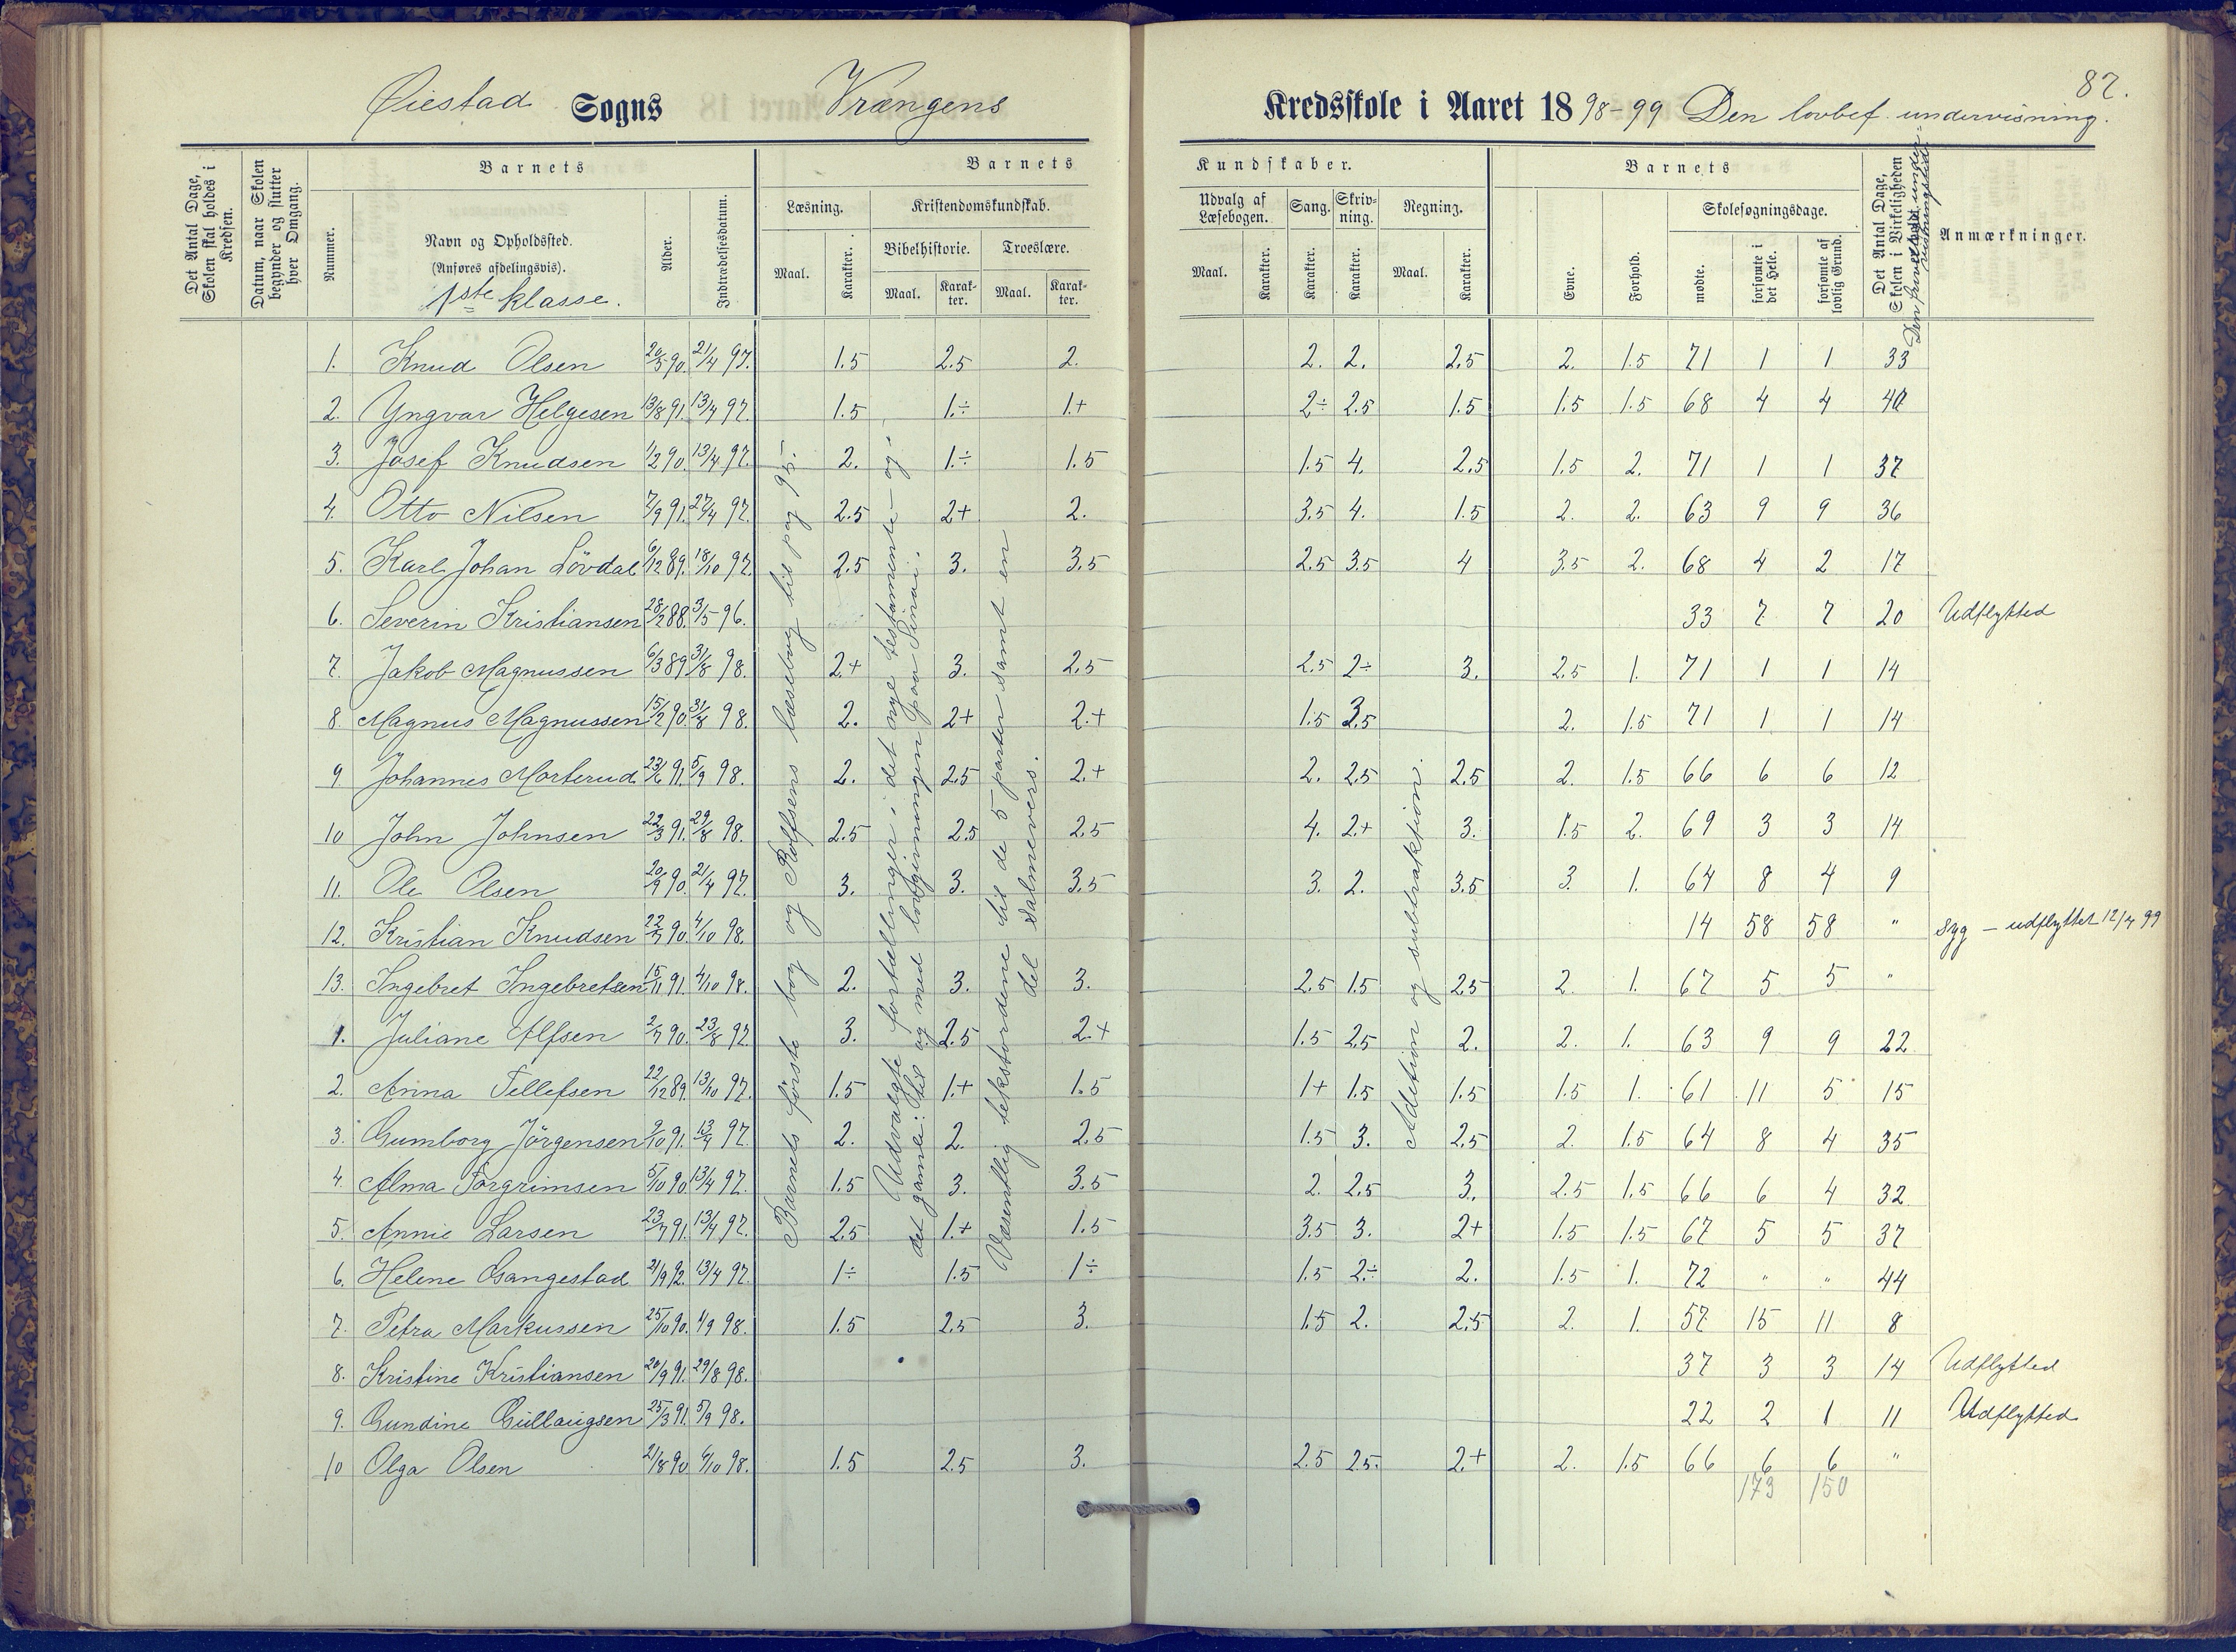 87.
Øiestad Sogns Vrængens Kredsskole i Aaret 1898-99 Den lovbef. undervisning.
Det Antal Dage, Skolen skal holdes i Kredsen.
Datum, naar Skolen begynder og slutter hver Omgang.
Barnets
Nummer.
Navn og Opholdssted.
(Anføres afdelingsvis).
1ste klasse.
Alder.
Indtrædelsesdatum.
Barnets Kundskaber.
Læsning.
Maal. Karakter.
Kristendomskundskab.
Bibelhistorie. Troeslære.
Maal. Karakter. Maal. Karakter.
Udvalg af Læsebogen.
Maal. Karakter.
Sang. Karakter.
Skrivning. Karakter.
Regning.
Maal. Karakter.
Barnets
Evne. Forhold.
Skolesøgningsdage.
mødte. forsømte i det Hele. forsømte af lovlig Grund.
Det Antal Dage, Skolen i Virkeligheden
Anmærkninger.
1. Knud Olsen 20/5 90. 21/4 97. 1.5 2.5 2. 2. 2. 2.5 2. 1.5 71 1 1 33
2. Yngvar Helgesen 13/8 91. 13/4 97. 1.5 1.÷ 1.+ 2÷ 2.5 1.5 1.5 1.5 68 4 4 40
3. Josef Knudsen 1/2 90. 13/4 97. 2. 1.÷ 1.5 1.5 4. 2.5 1.5 2. 71 1 1 37
4. Otto Nilsen 7/9 91. 27/4 97. 2.5 2+ 2. 3.5 4. 1.5 2. 2. 63 9 9 36
5. Karl Johan Lövdal 6/12 89. 18/10 97. 2.5 3. 3.5 2.5 3.5 4 3.5 2. 68 4 2 17
6. Severin Kristiansen 28/12 88. 3/5 96. 33 7 7 20 Udflytted
7. Jakob Magnussen 6/3 89 31/8 98. 2+ 3. 2.5 2.5 2÷ 3. 2.5 1. 71 1 1 14
8. Magnus Magnussen 15/2 90. 31/8 98. 2. 2+ 2.+ 1.5 3.5 2. 1.5 71 1 1 14
9. Johannes Morterud 23/6 91. 5/9 98. 2. 2.5 2.+ 2. 2.5 2.5 2. 1.5 66 6 6 12
10 John Johnsen 22/3 91. 29/8 98. 2.5 2.5 2.5 4. 2.+ 3. 1.5 2. 69 3 3 14
11. Ole Olsen 20/9 90. 21/4 97. 3. 3. 3.5 3. 2. 3.5 3. 1. 64 8 4 9
12. Kristian Knudsen 22/7 90. 4/10 98. 14 58 58 " syg — udflyttet 12/4 99
13. Ingebret Ingebretsen 15/11 91. 4/10 98. 2. 3. 3. 2.5 1.5 2.5 2. 1. 67 5 5 "
1. Juliane Alfsen 2/7 90. 23/8 97. 3. 2.5 2.+ 1.5 2.5 2. 2. 1. 63 9 9 22
2. Anna Tellefsen 22/12 89. 13/10 97. 1.5 1.+ 1.5 1+ 1.5 1.5 1.5 1. 61 11 5 15
3. Gumborg Jörgensen 2/10 91. 13/4 97. 2. 2. 2.5 1.5 3. 2.5 2. 1.5 64 8 4 35
4. Alma Torgrimsen 5/10 90 13/4 97. 1.5 3. 3.5 2. 2.5 3. 2.5 1.5 66 6 4 32
5. Annie Larsen 23/7 91. 13/4 97. 2.5 1.+ 1.5 3.5 3. 2+ 1.5 1.5 67 5 5 37
6. Helene Gangestad 21/9 92. 13/4 97. 1÷ 1.5 1÷ 1.5 2÷ 2. 1.5 1. 72 " " 44
7. Petra Markussen 25/10 90. 1/9 98. 1.5 2.5 3. 1.5 2. 2.5 2. 1. 57 15 11 8
8. Kristine Kristiansen 20/9 91. 29/8 98. 37 3 3 14 Udflytted
9. Gundine Gullaugsen 25/3 91. 5/9 98. 22 2 1 11 Udflytted
10 Olga Olsen 21/8 90 4/10 98. 1.5 2.5 3. 2.5 2.5. 2.+ 2. 1.5 66 6 6 "
173 150
Barnets förste bog og Rolfsens læsebog til pag 95.
Udvalgte fortællinger i det nye testamente og i
det gamle: til og med lovgivningen paa Sinai.
Væsentlig tekstordene til de 5 parter samt en
del salmevers.
Addition og subtraktion.